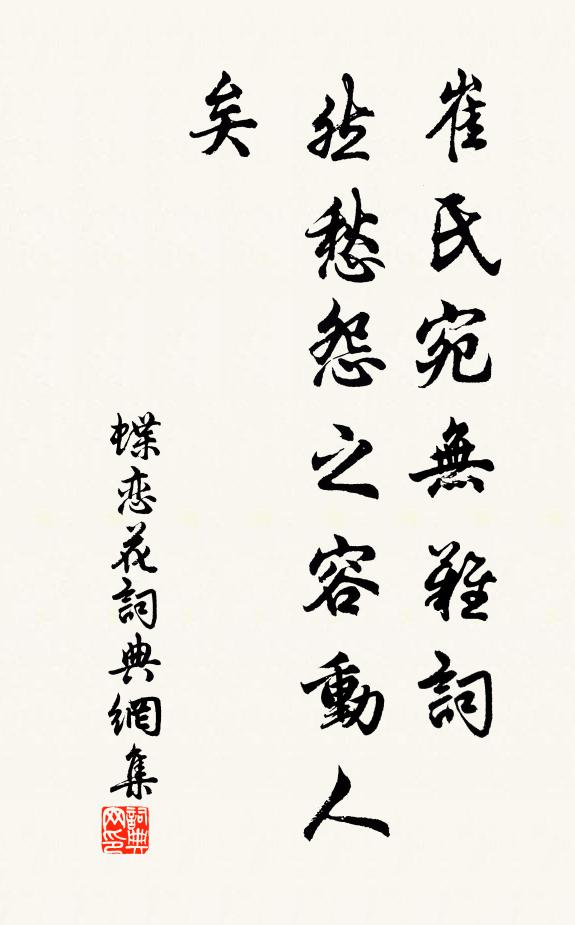 崔氏宛無難詞
然愁怨之容動人
矣
蝶恋花詞典網集
詞典网印